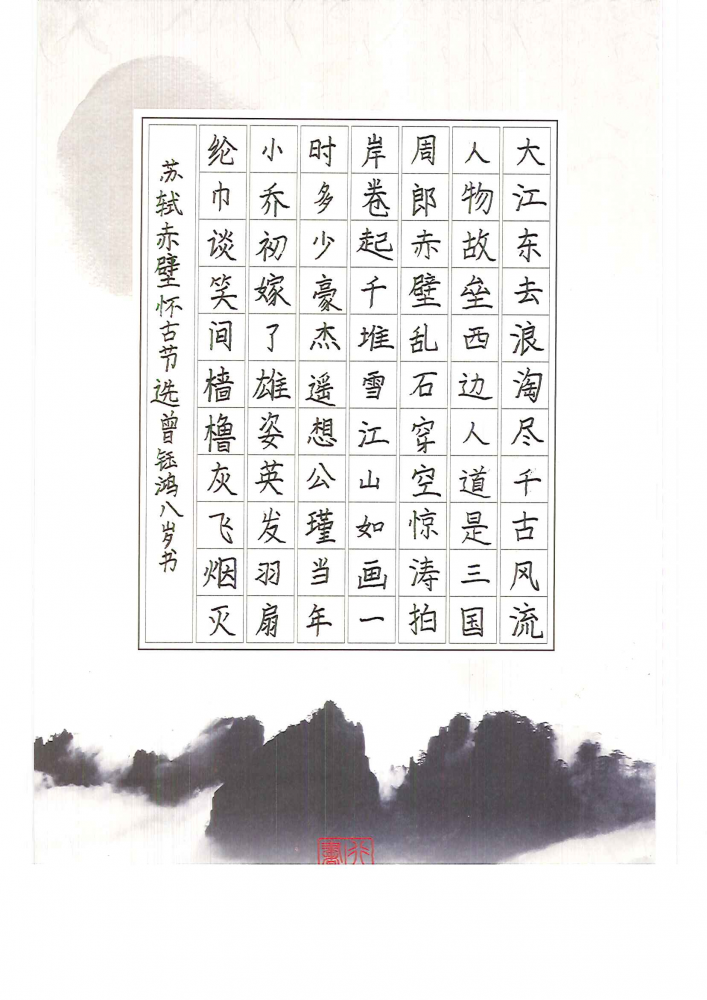 大江东去浪淘尽千古风流
人物故垒西边人道是三国
周郎赤壁乱石穿空惊涛拍
岸卷起千堆雪江山如画一
时多少豪杰遥想公瑾当年
小乔初嫁了雄姿英发羽扇
纶巾谈笑间樯橹灰飞烟灭
苏轼赤壁怀古节选曾钰鸿八岁书